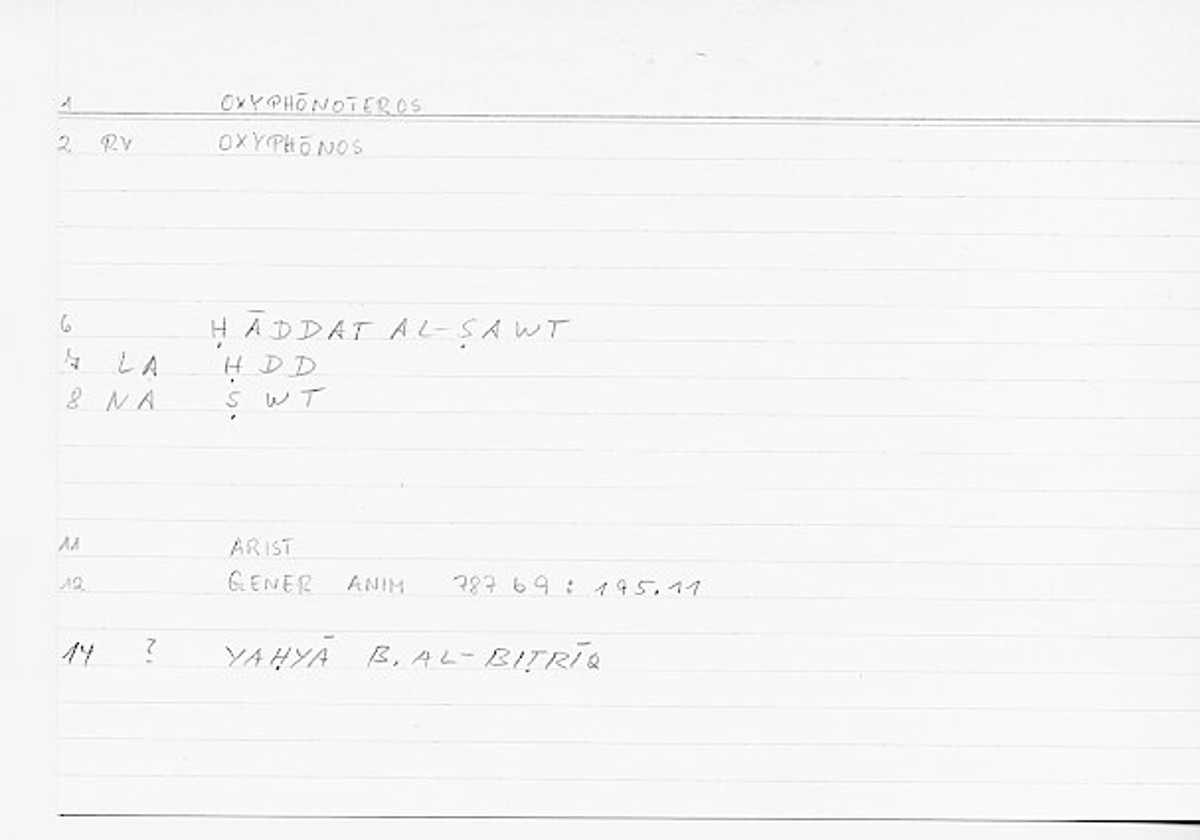 1 OXYPHŌNOTEROS
2 RV OXYPHŌNOS
6 ḤĀDDAT AL-ṢAWT
7 LA ḤDD
8 NA ṢWT
11 ARIST
12 GENER ANIM 787 b9 : 195.11
14 ? YAḤYĀ B. AL-BIṬRĪQ